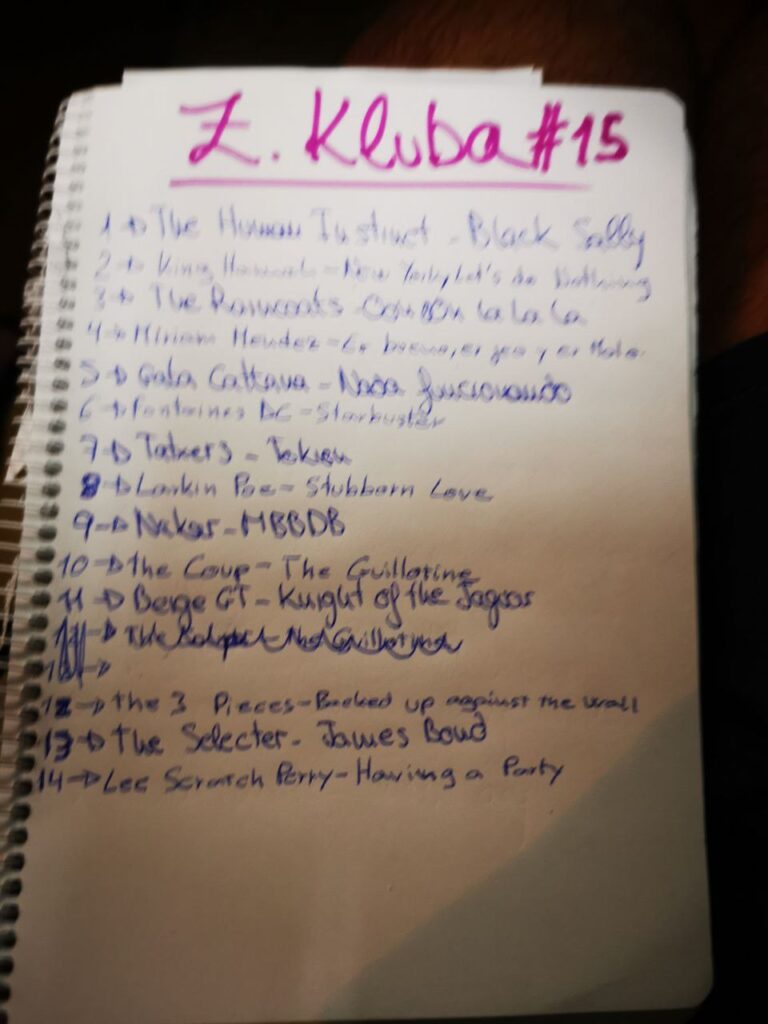 Z. Kluba #15
1 → The Human Instinct - Black Sally
2 → King Hannah - New York, Let's do Nothing
3 → The Raincoats - La La La
4 → Miriam Mendez - Er bueno, er feo y er malo
5 → Gata Cattana - Nada funcionando
6 → Fontaines DC - Starbuster
7 → Tatxers -
8 → Larkin Poe - Stubborn Love
9 → Nakar - MBBDB
10 → The Coup - The Guillotine
11 → Beige GT - Knight of the Jaguar
12 → The 3 Pieces - Backed up against the wall
13 → The Selecter - James Bond
14 → Lee Scratch Perry - Having a Party